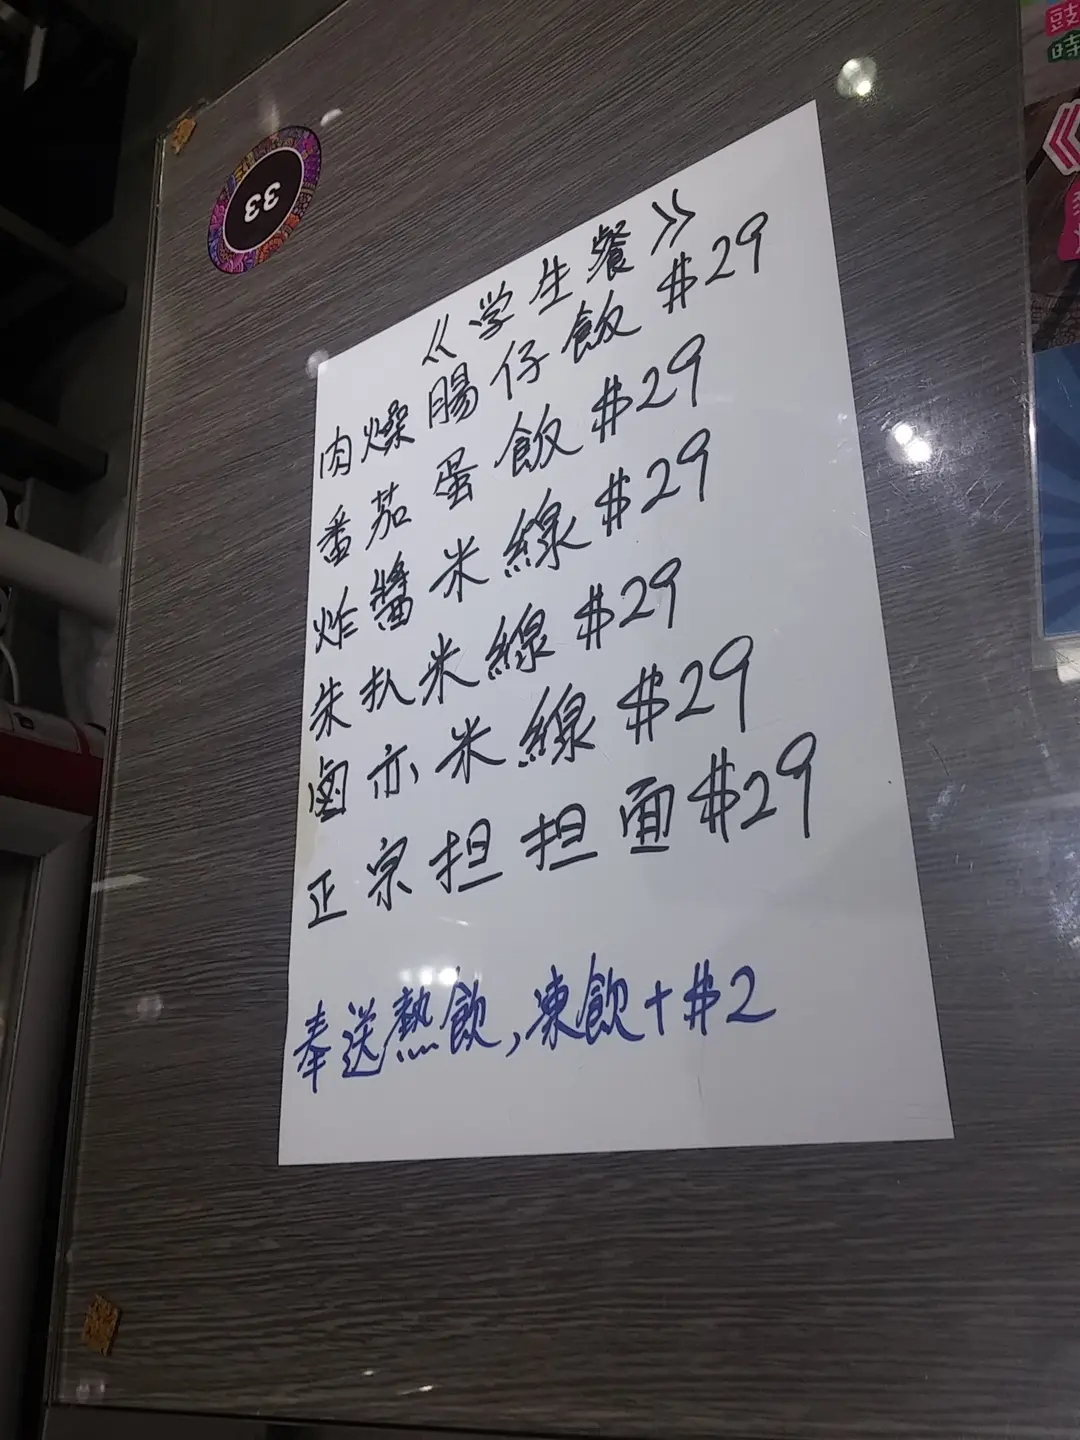 33
《学生餐》
肉燥腸仔飯 $29
番茄蛋飯 $29
炸醬米線 $29
朱扒米線 $29
卤亦米線 $29
正宗担担面 $29
奉送熱飲,凍飲+$2